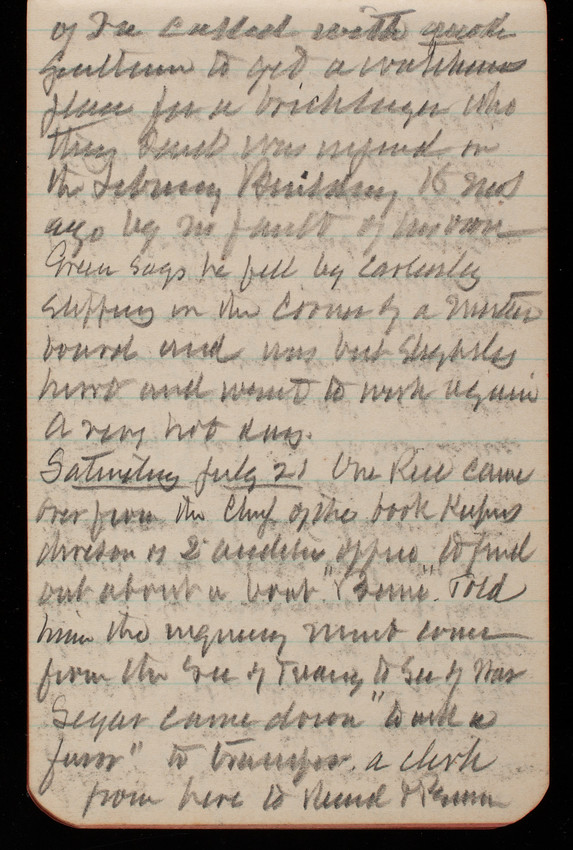 of Tre called with
gentlemen to get a watchmans
place for a bricklayer who
they said was injured on
the Building 16 mos
ago by no fault of his own
Green says he fell by carelessly
slipping on the corner of a mortar
board and was but slightly
hurt and went to work again
A very hot day.
Saturday July 21 One Rice came
over from the Chf of the book Keepers
division of 2d auditors office to find
out about a boat " ". Told
him the inquiry must come
from the Sec of Treasy to Sec of War
Segar came down "to ask a
favor" to transfer a clerk
from here to Record & Pension